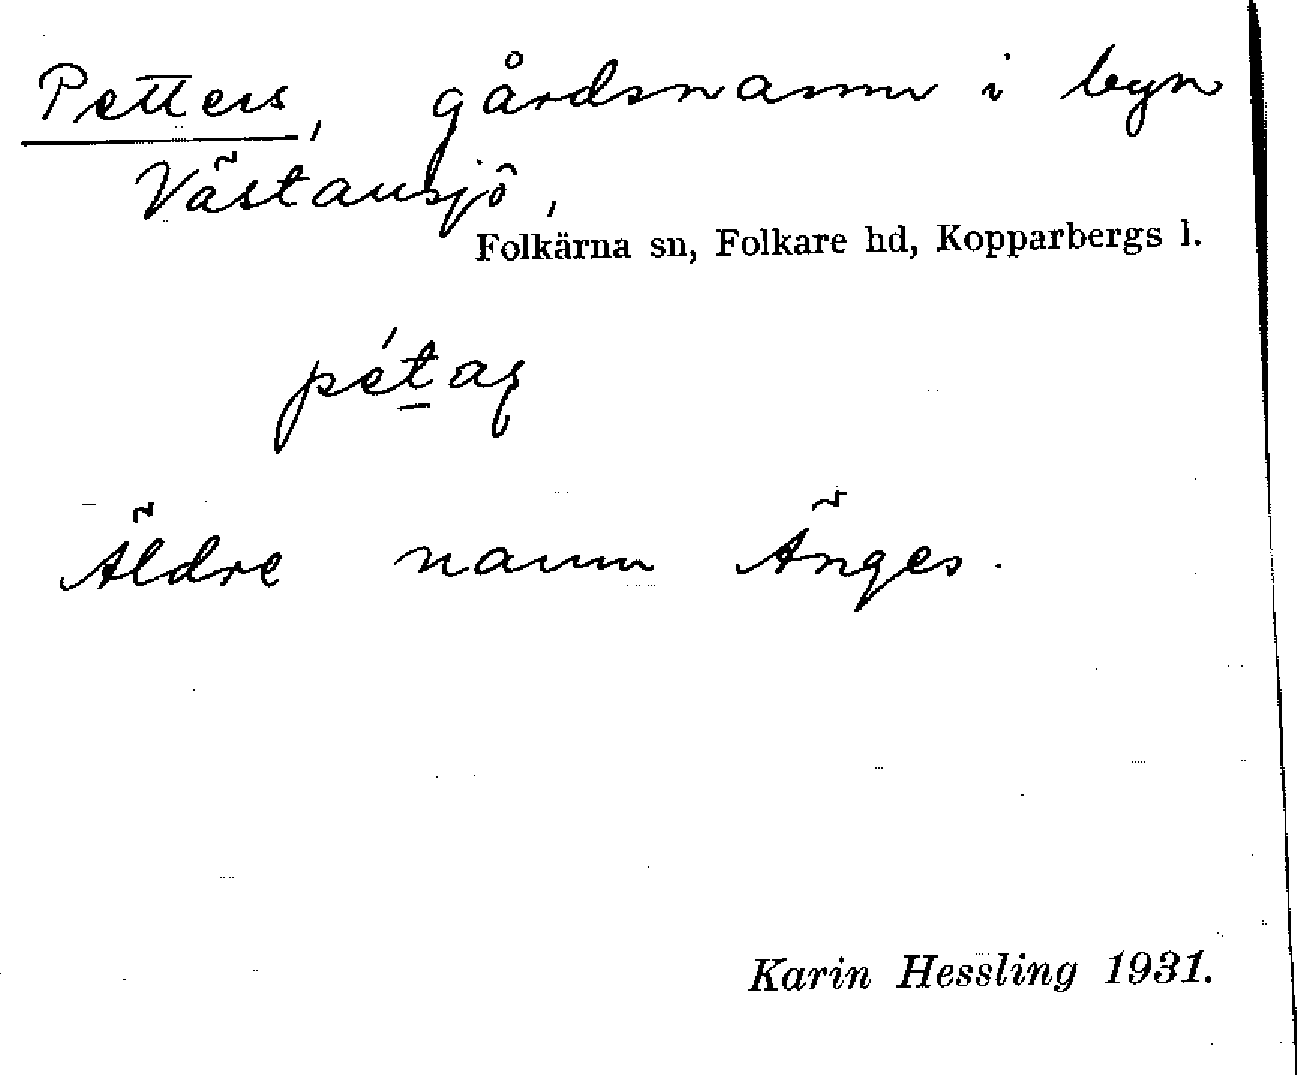 Petters, gårdsnamn i byn
Västansjö,
Folkärna sn, Folkare hd, Kopparbergs l.
Äldre namn Änges.
Karin Hessling 1931.